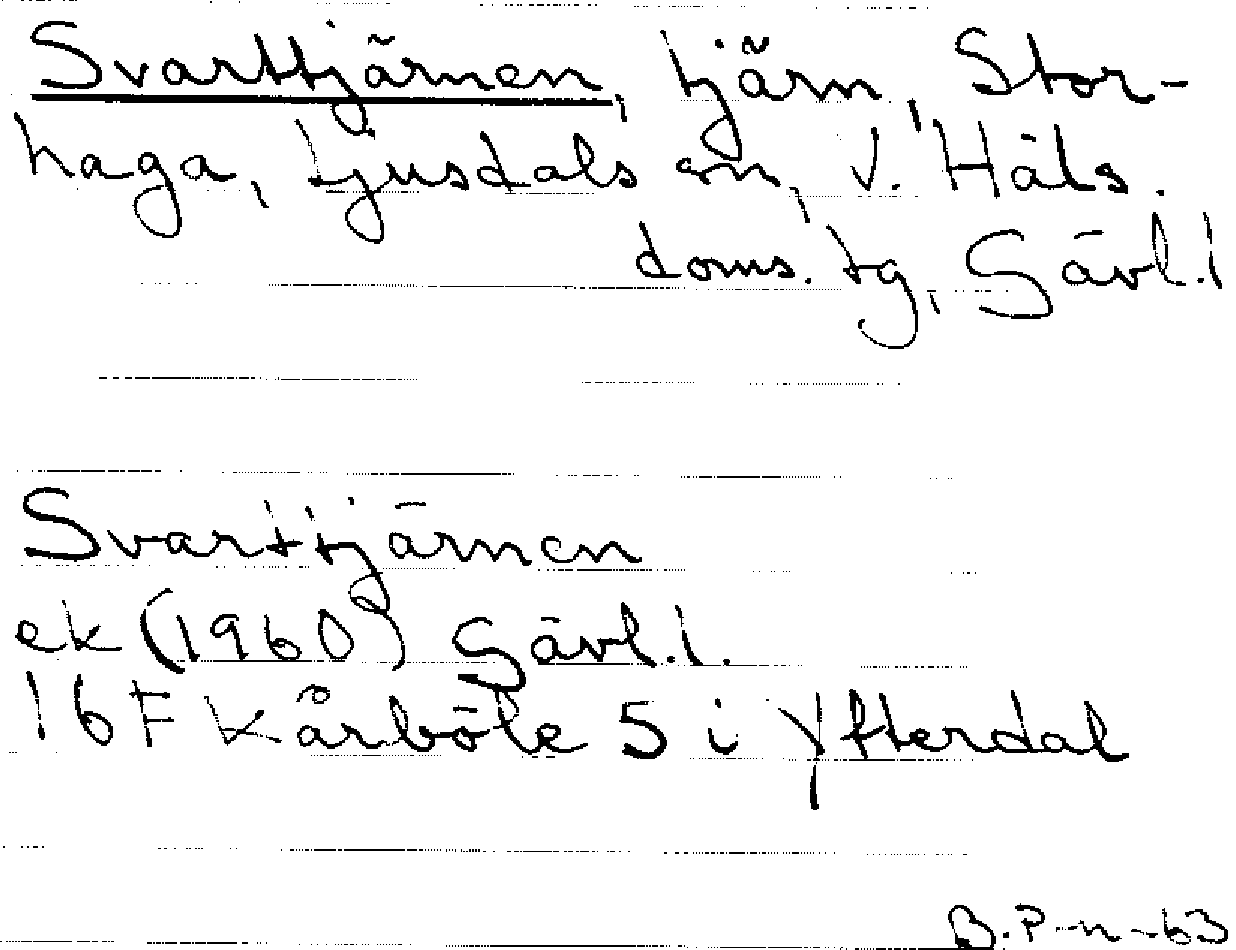 Svarttjärnen, tjärn, Stor-
haga, Ljusdals sn, V. Häls.
doms. tg, Gävl.l
Svarttjärnen
ek (1960) Gävl.l.
16F Kårböle 5 i Yfterdal
B.P-n-63